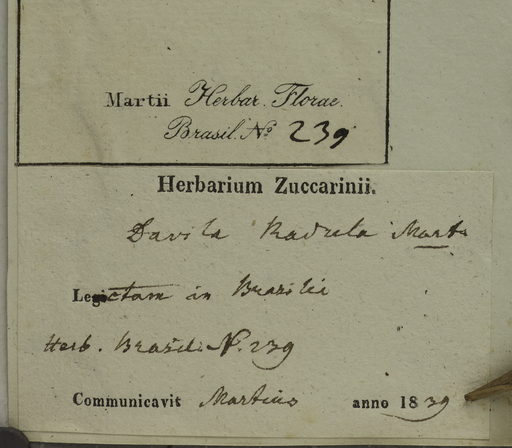 Martii Herbar. Florae.
Brasil. No 239
Herbarium Zuccarinii.
Davila Radula Mart.
Lectam in Brasilie
Herb. Brasil. N. 239
Communicavit Martius anno 1839